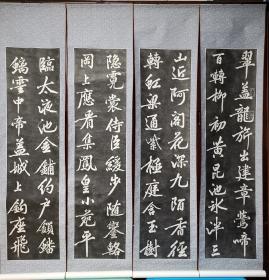 翠盖龍旂出建章鶯啼
百轉柳初黄昆池冰泮三
山近阿閣花深九陌香徑
轉虹梁通紫極庭含玉樹
隐霓裳侍臣緩步随鑾輅
岡上應看集鳳皇小苑平
臨太液池金鋪約户鎖蟠
螭雲中帝蓋城上鉤座飛